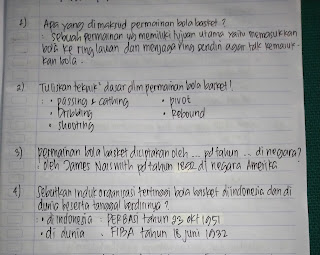 1) Apa yang dimaksud permainan bola basket ?
: sebuah permainan yg memiliki tujuan utama yaitu memasukkan
bola ke ring lawan dan menjaga ring sendiri agar tdk kemasuk-
kan bola.
2) Tuliskan teknik² dasar dlm permainan bola basket!
: • passing & cathing • pivot
• Dribbling • Rebound
• shooting
3) permainan bola basket diciptakan oleh ... pd tahun ... di negara?
: oleh James Naiswith pd tahun 1892 di negara Amerika
4) Sebutkan induk organisasi tertinggi bola basket di indonesia dan di
dunia beserta tanggal berdirinya ?
: • di indonesia : PERBASI tahun 23 okt 1951
• di dunia : FIBA tahun 18 juni 1932